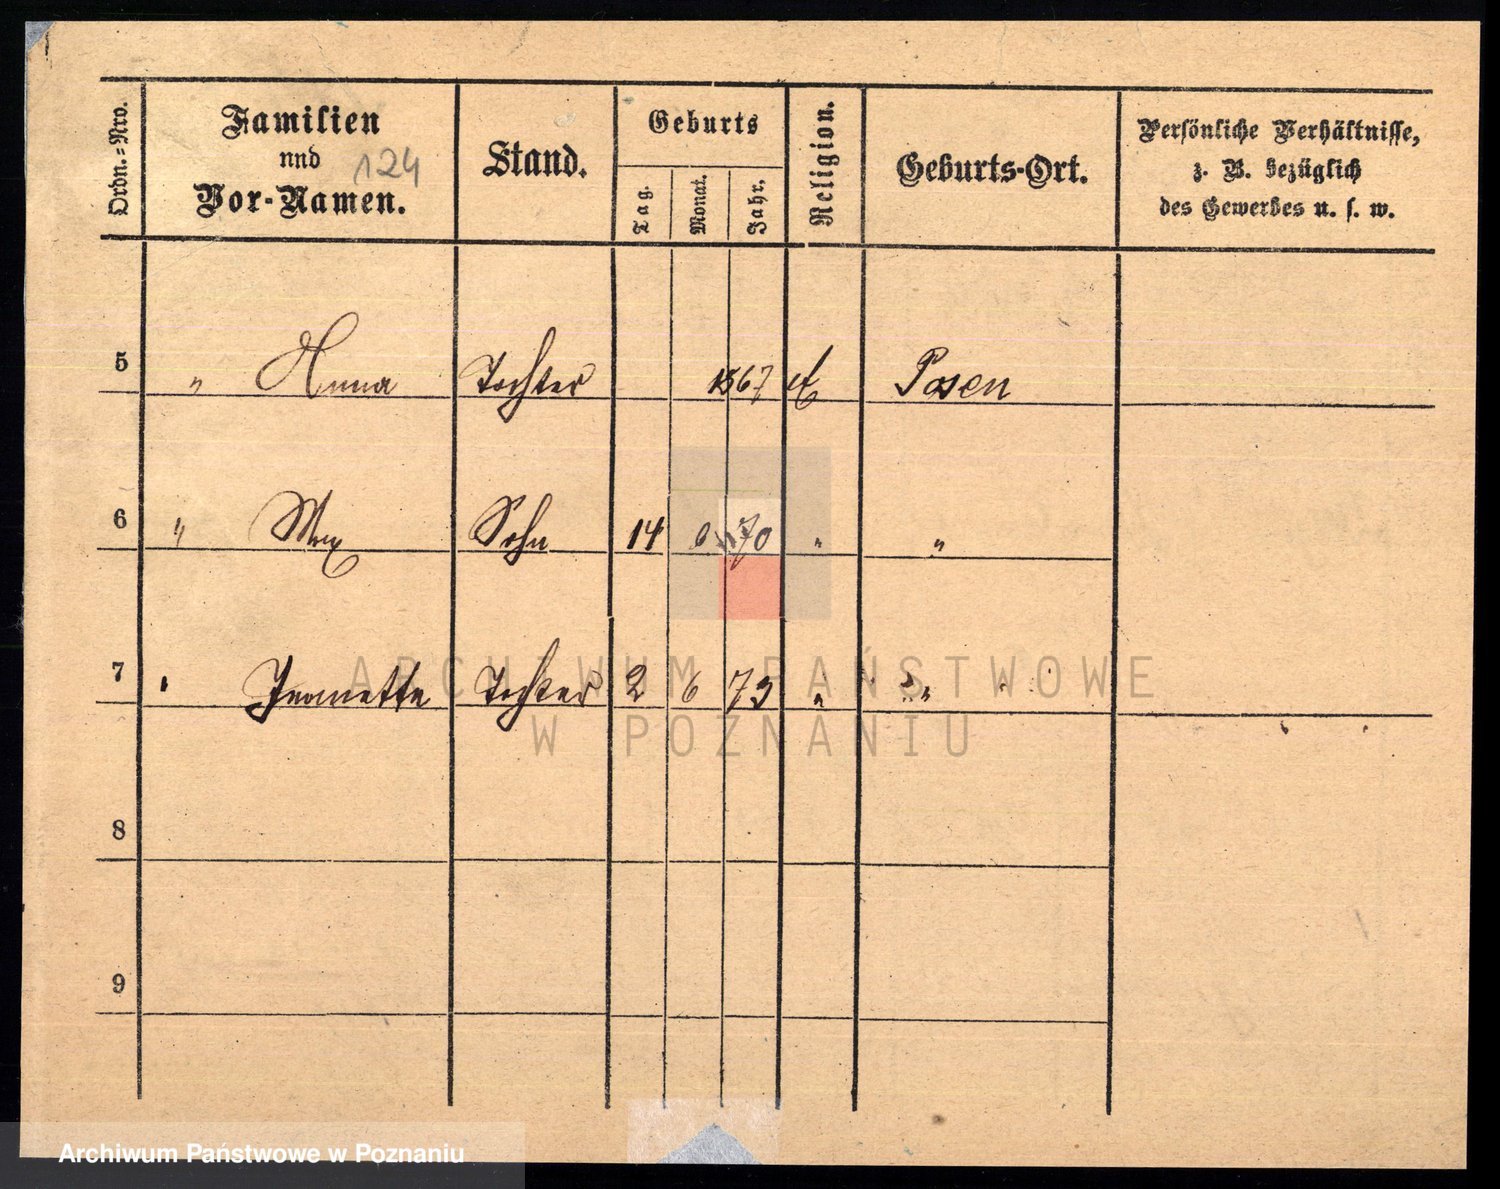 Ordn.=Nro.
Familien
und
Vor-Namen.
124
Stand.
Geburts
Tag.
Monat.
Jahr.
Religion.
Geburts-Ort.
Persönliche Verhältnisse,
z. B. bezüglich
des Gewerbes u. s. w.
5 " Anna Tochter 1867 Posen
6 " Max Sohn 14 6 70 " "
7 " Jeanette Tochter 2 6 73 " "
8
9
ARCHIWUM PAŃSTWOWE
W POZNANIU
Archiwum Państwowe w Poznaniu